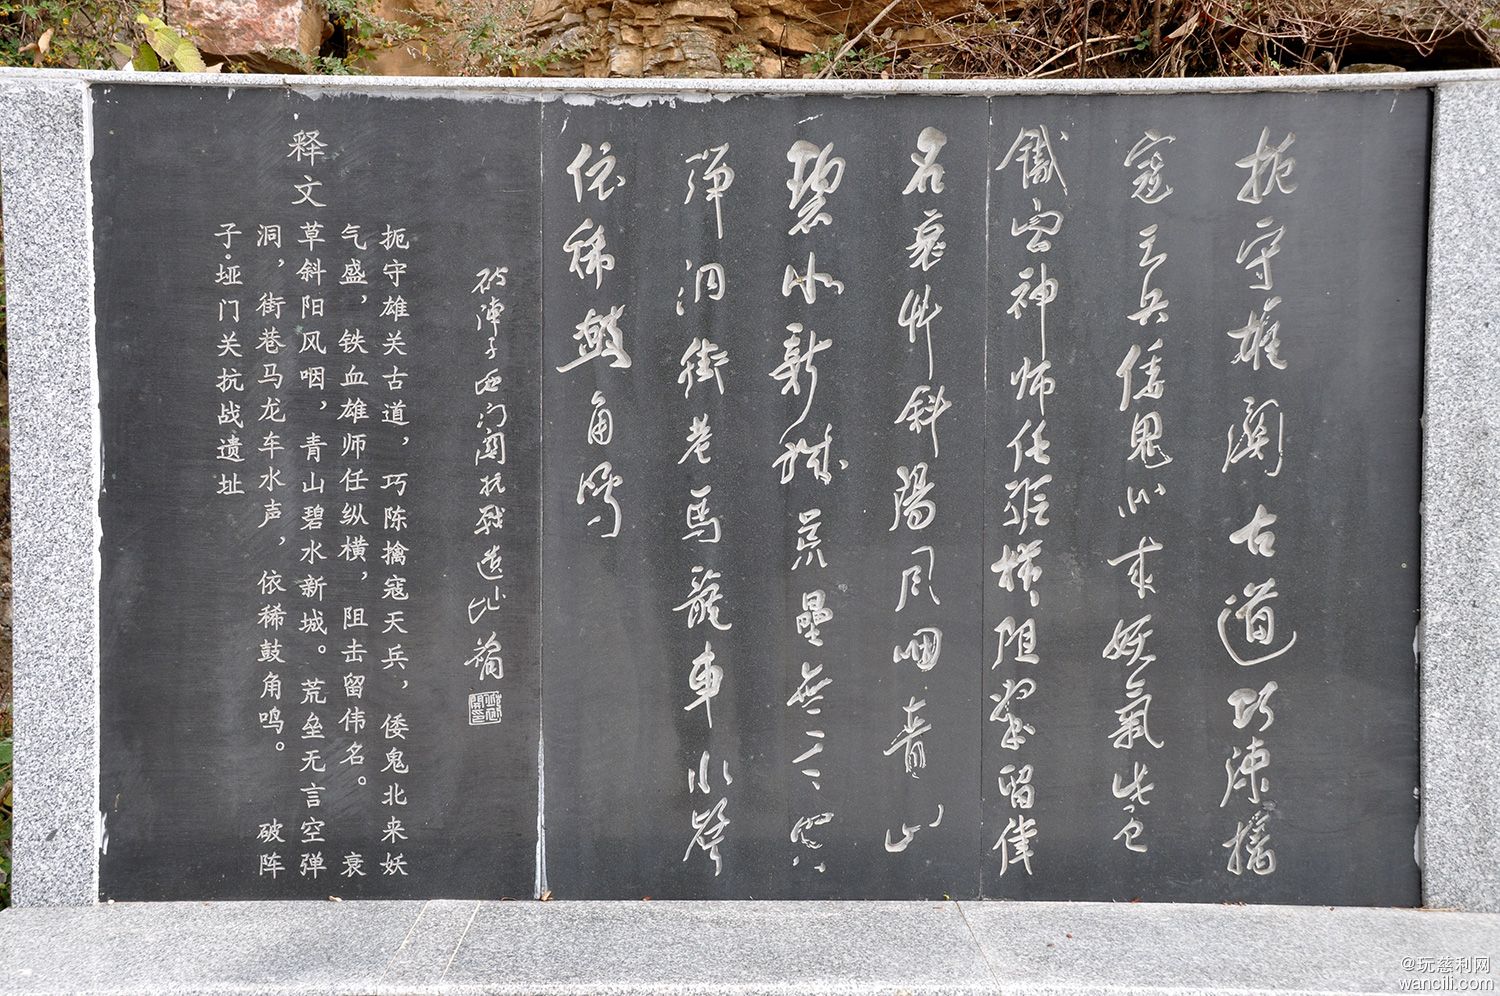 扼守雄關古道巧陳擒
寇天兵倭鬼北来妖氣盛
鐵血神师任縱横阻擊留偉
名衰草斜陽风咽青山
碧水新城荒壘無言空
彈洞街巷馬龍車水聲
依稀鼓角鳴
破陣子垭门關抗戰遗址
释文
扼守雄关古道，巧陈擒寇天兵，倭鬼北来妖
气盛，铁血雄师任纵横，阻击留伟名。 衰
草斜阳风咽，青山碧水新城。荒垒无言空弹
洞，街巷马龙车水声，依稀鼓角鸣。 破阵
子·垭门关抗战遗址
@玩慈利网
wancili.com